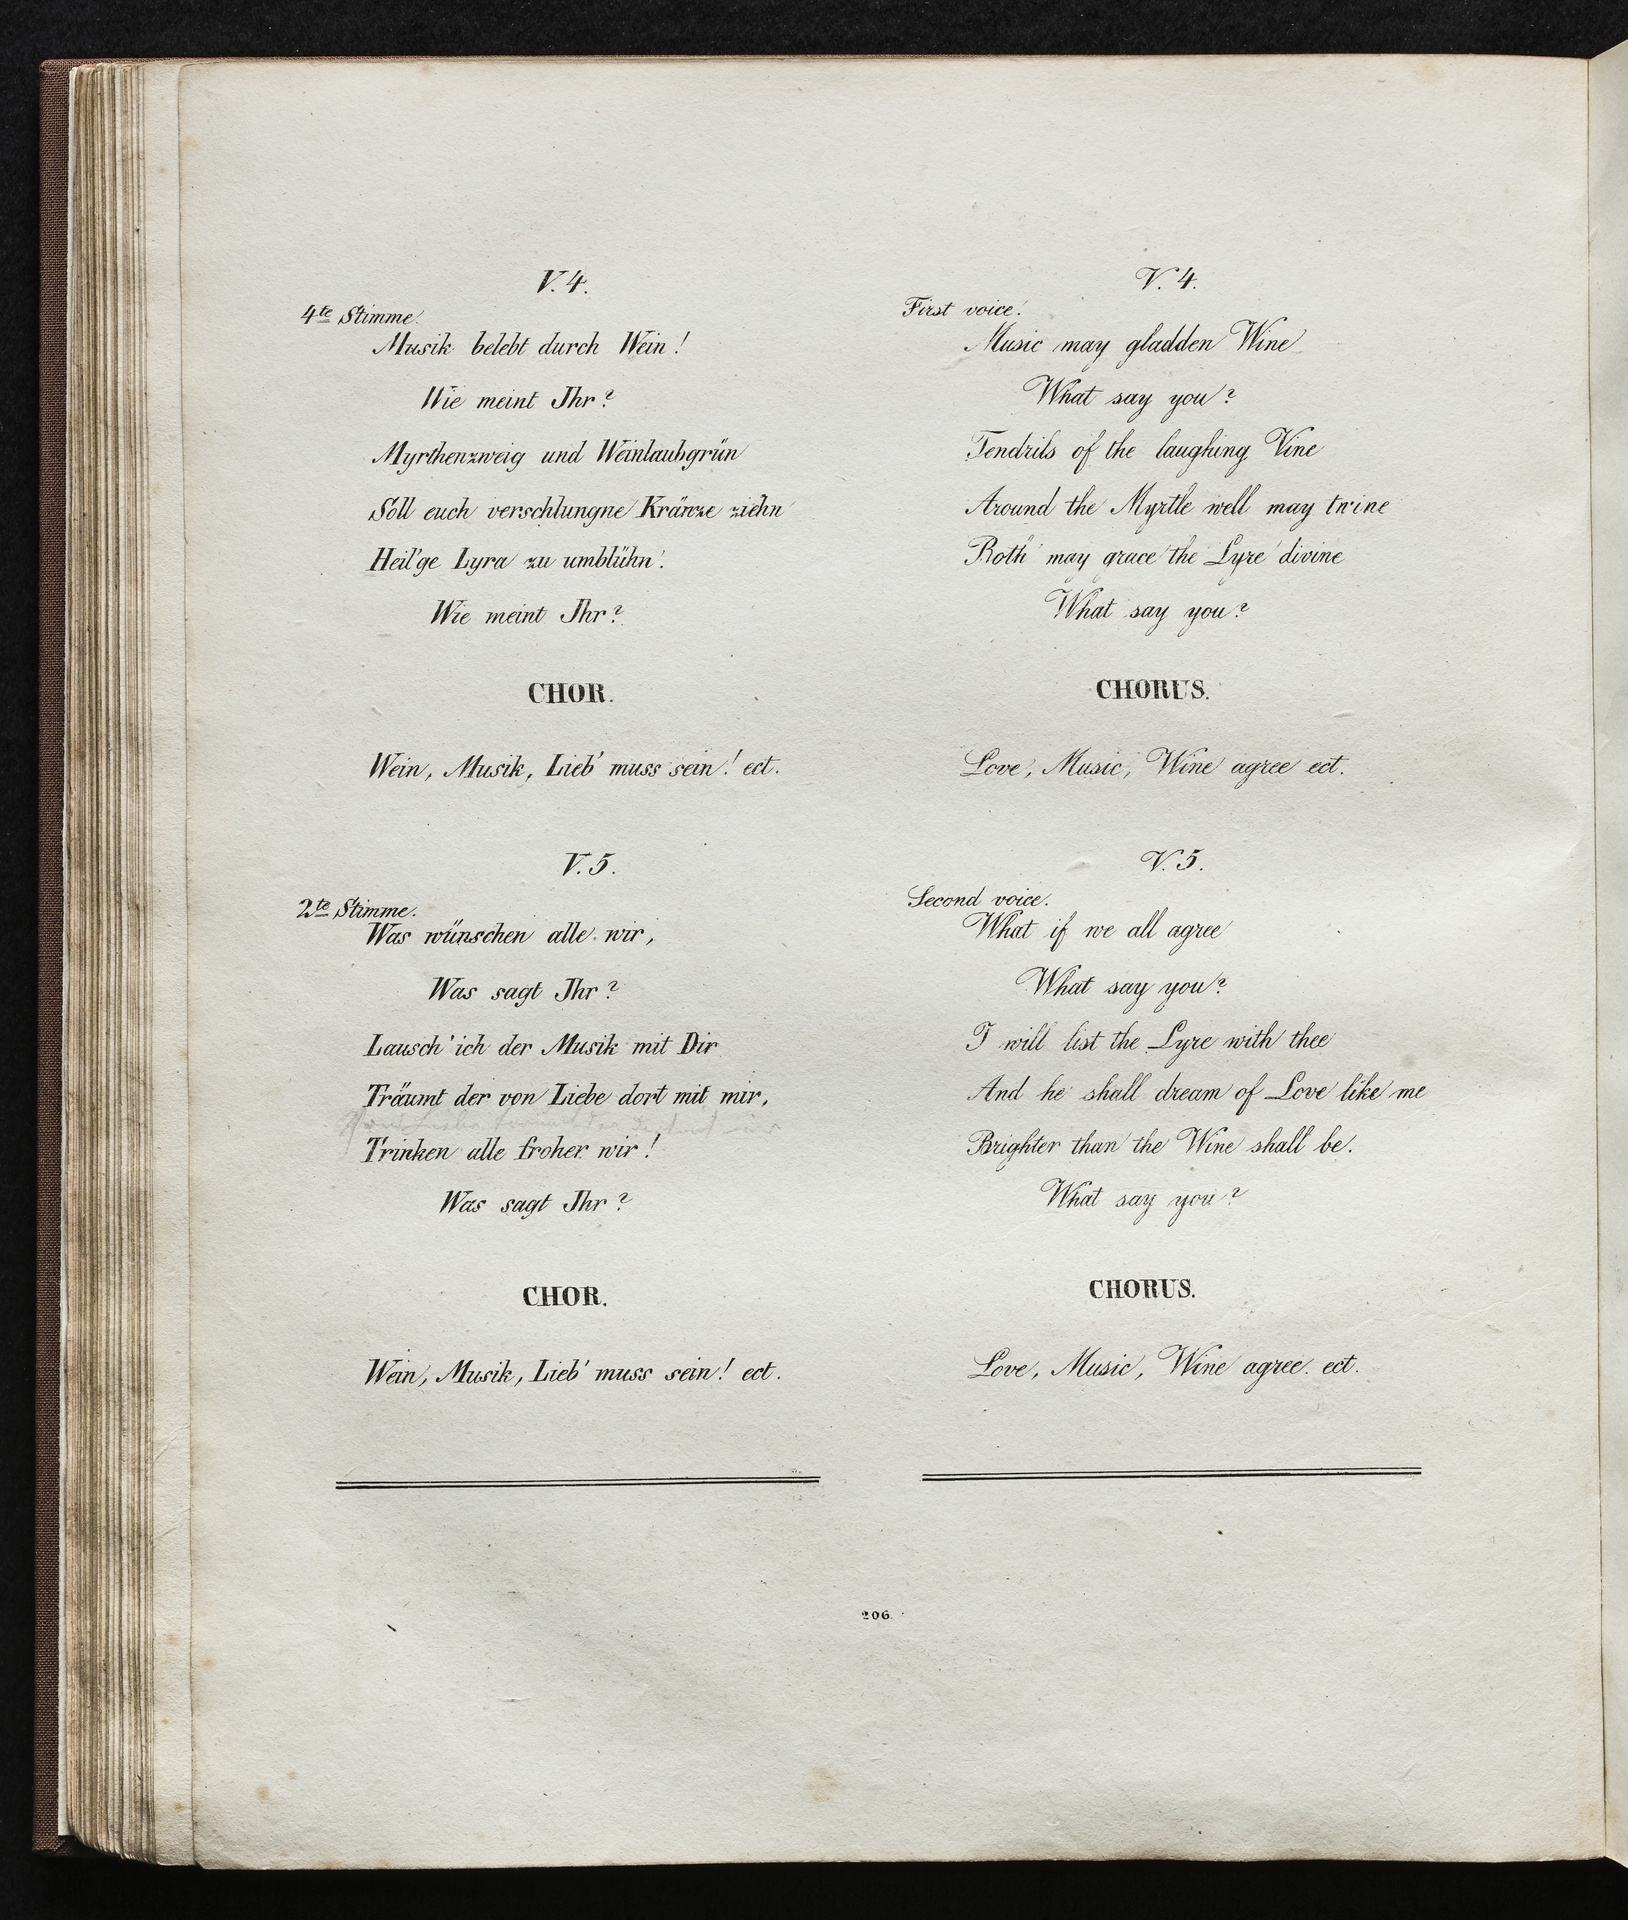 V. 4.
4te Stimme.
Musik belebt durch Wein!
Wie meint Jhr?
Myrthenzweig und Weinlaubgrün
Soll euch verschlungne Kränze ziehn
Heil'ge Lyra zu umblühn!
Wie meint Jhr?
CHOR.
Wein, Musik, Lieb' muss sein! ect.
V. 5.
2te Stimme.
Was wünschen alle wir,
Was sagt Jhr?
Lausch' ich der Musik mit Dir
Träumt der von Liebe dort mit mir,
Trinken alle froher wir!
Was sagt Jhr?
CHOR.
Wein, Musik, Lieb' muss sein! ect.
V. 4.
First voice.
Music may gladden Wine
What say you?
Tendrils of the laughing Vine
Around the Myrtle well may twine
Both may grace the Lyre divine
What say you?
CHORUS.
Love, Music, Wine agree ect.
V. 5.
Second voice.
What if we all agree
What say you?
I will list the Lyre with thee
And he shall dream of Love like me
Brighter than the Wine shall be.
What say you?
CHORUS.
Love, Music, Wine agree. ect.
206.